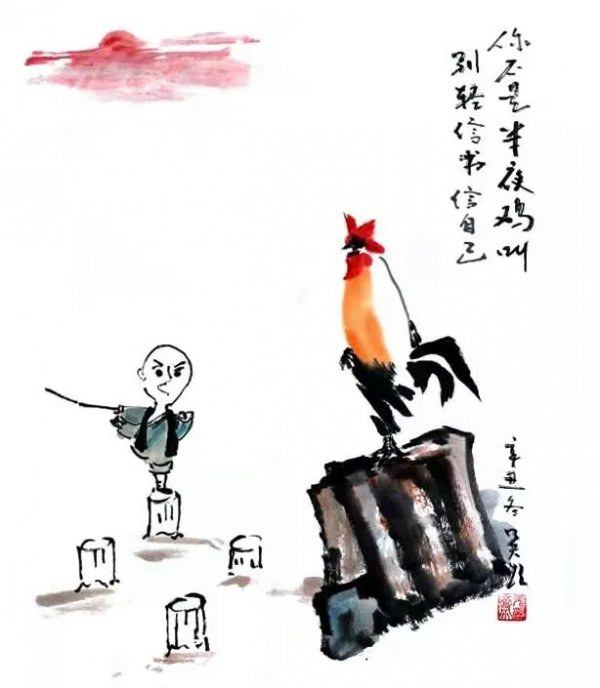 你不是半夜鸡叫
别轻信我信自己
辛丑冬吴